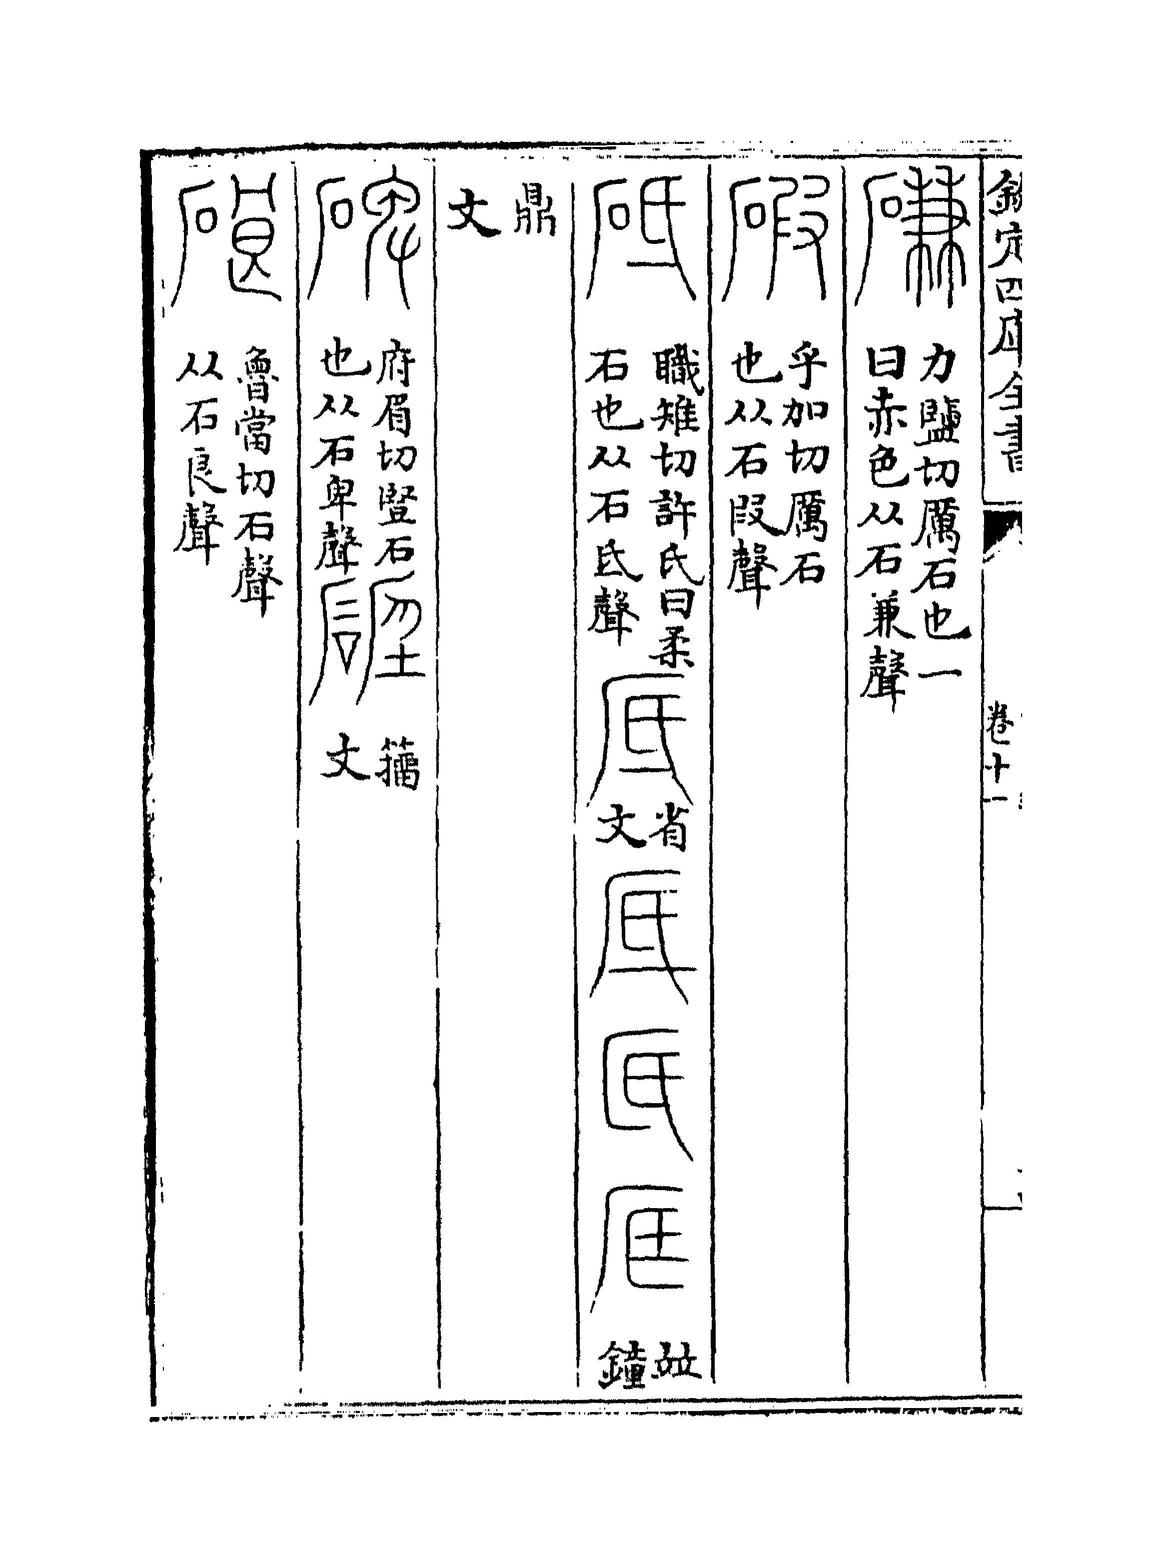 欽定四庫全書
卷十一
磏
力鹽切厲石也一
曰赤色从石兼聲
碬
乎加切厲石
也从石叚聲
砥
職雉切許氏曰柔
石也从石氐聲
厎
省
文
竝
鐘
鼎
文
碑
府眉切竪石
也从石卑聲
籀
文
硠
魯當切石聲
从石良聲